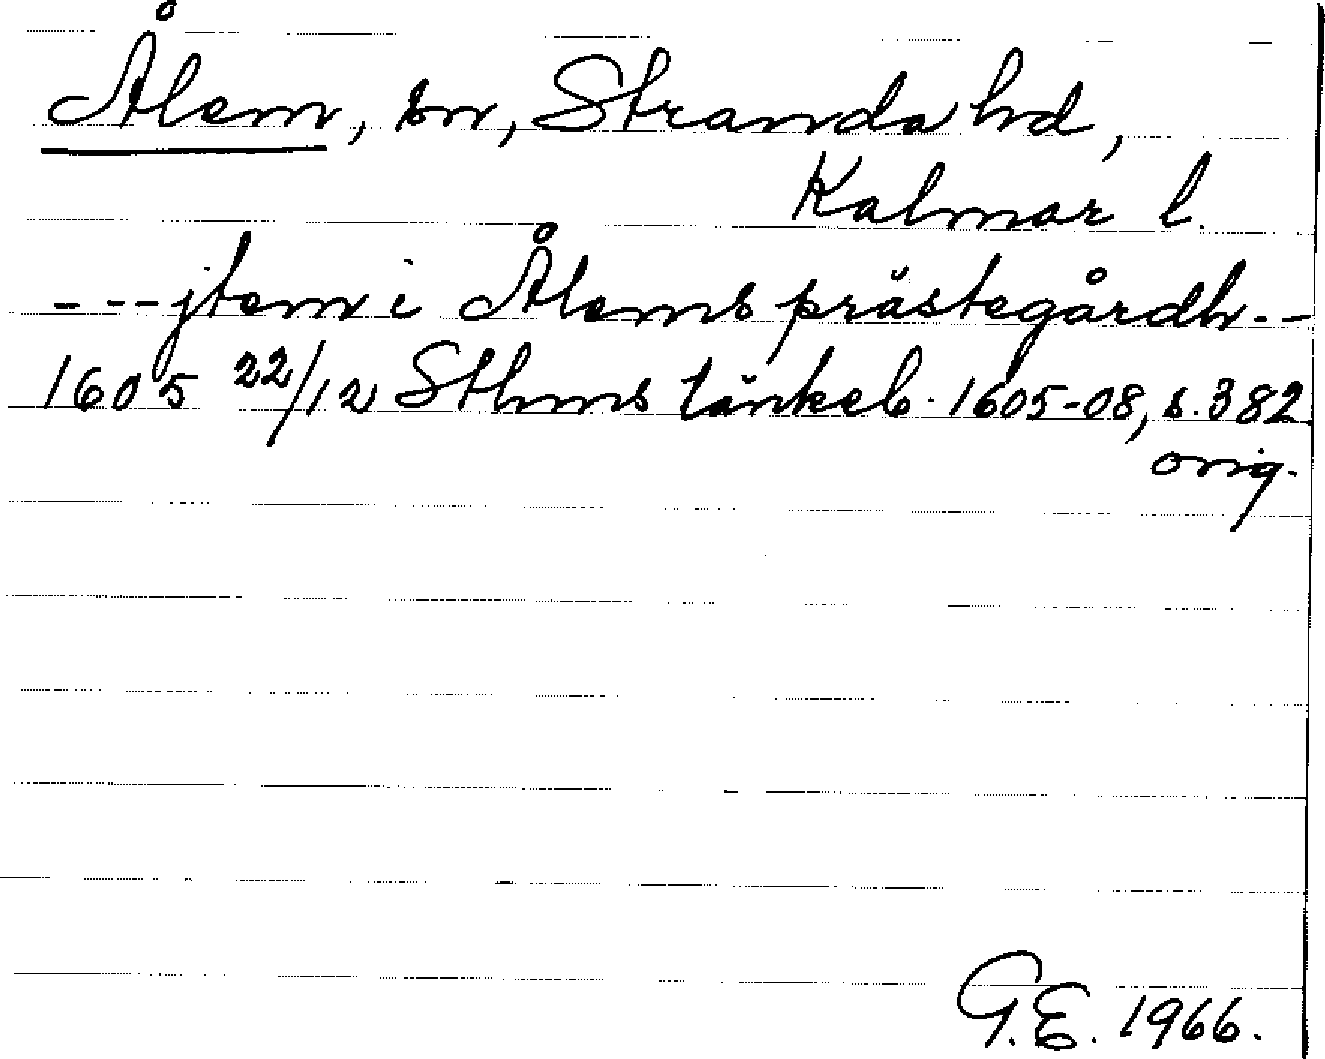 Ålem, sn, Stranda hd,
Kalmar l.
- -- jtem i Ålems prästegårdh --
1605 22/12 Sthms tänkeb. 1605-08, s. 382
orig.
G.E. 1966.